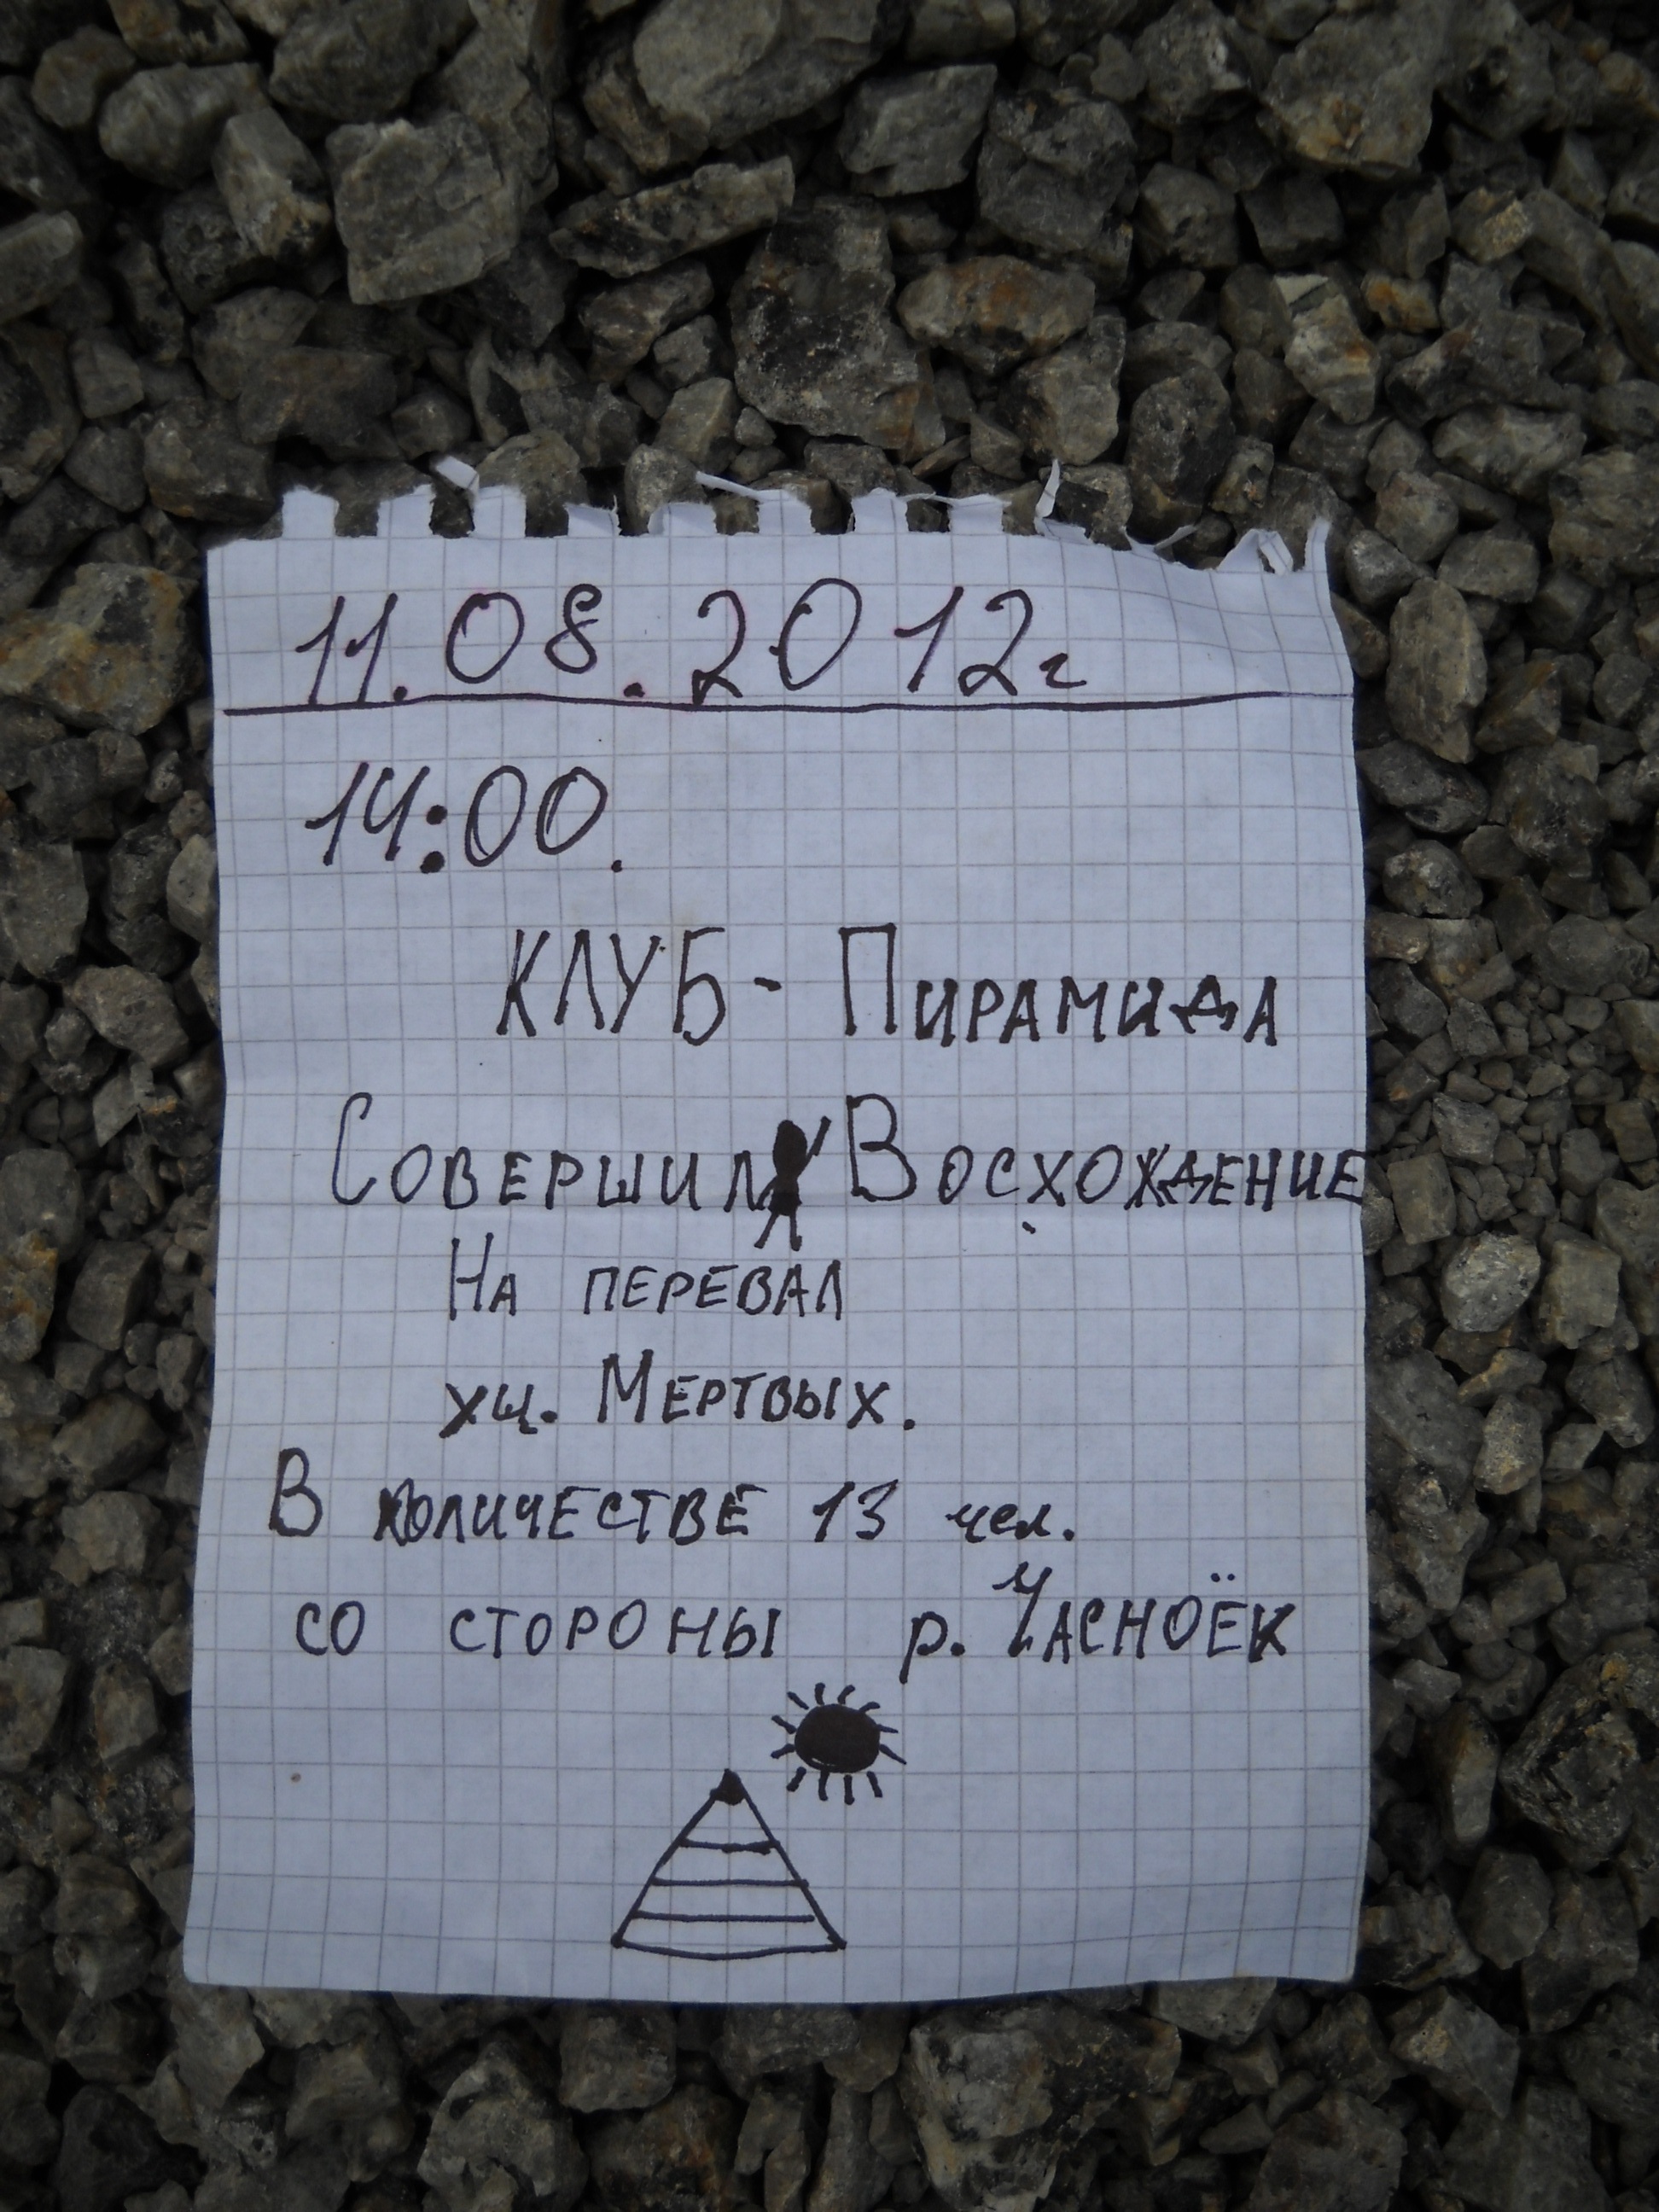 11.08.2012г
14:00.
КЛУБ - ПИРАМИДА
СОВЕРШИЛ ВОСХОЖДЕНИЕ
НА ПЕРЕВАЛ
ХЦ. МЕРТВЫХ.
В КОЛИЧЕСТВЕ 13 чел.
СО СТОРОНЫ р. ЧАСНОЁК